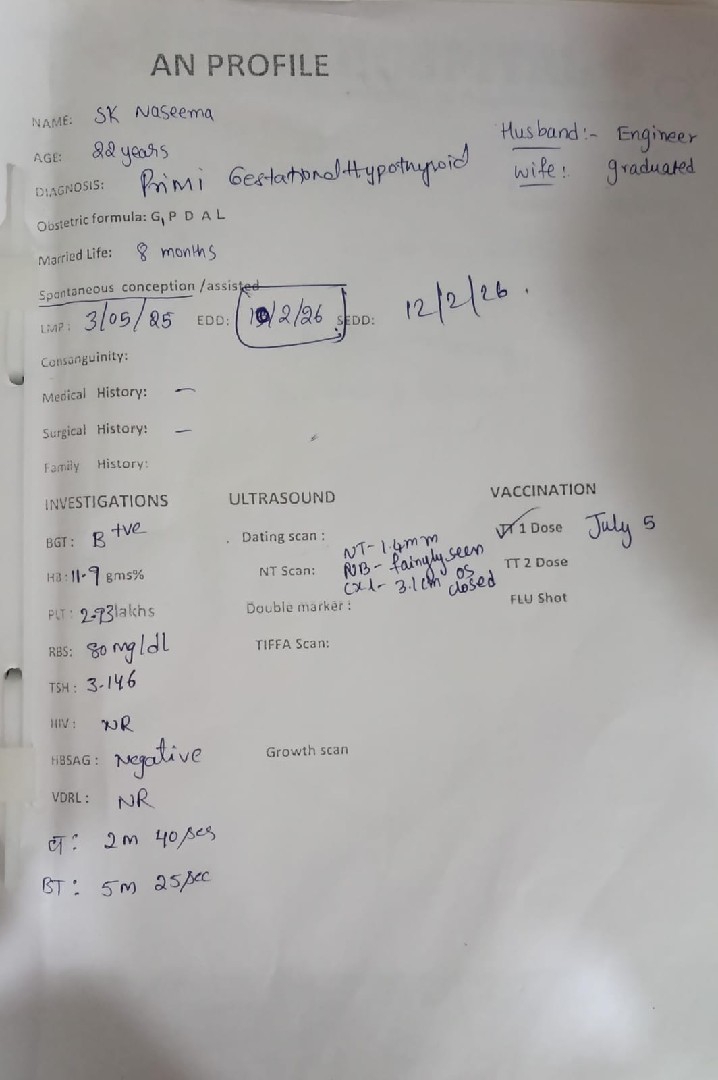 AN PROFILE
NAME: SK Naseema
AGE: 22 years
Husband:- Engineer
DIAGNOSIS: Primi Gestational Hypothyroid
wife:. graduated
Obstetric formula: G, P D A L
Married Life: 8 months
Spontaneous conception /assisted
LMP: 3/05/25 EDD: 10/2/26 SEDD: 12/2/26.
Consanguinity:
Medical History: -
Surgical History: -
Family History:
INVESTIGATIONS
BGT: B +ve
HB: 11.9 gms%
PLT: 2.93 lakhs
RBS: 80 mg/dl
TSH: 3.146
HIV: NR
HBSAG: Negative
VDRL: NR
CT: 2m 40/sec
BT: 5m 25/sec
ULTRASOUND
Dating scan:
NT Scan: NT- 1.4mm
NB- faingly seen
CXL- 3.1cm os closed
Double marker:
TIFFA Scan:
Growth scan
VACCINATION
TT 1 Dose July 5
TT 2 Dose
FLU Shot